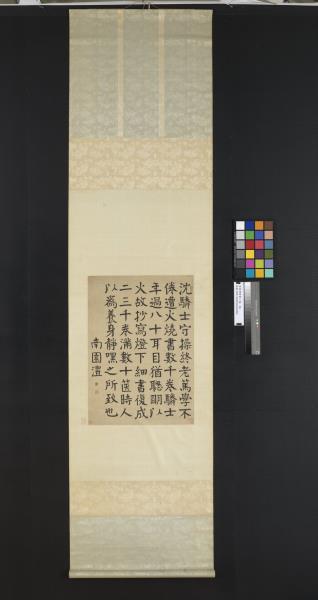 沈驎士守操終老篤學不
倦遭火燒書數千卷驎士
年過八十耳目猶聰明以
火故抄寫燈下細書復成
二三千卷滿數十篋時人
以為養身靜嘿之所致也
南園灃